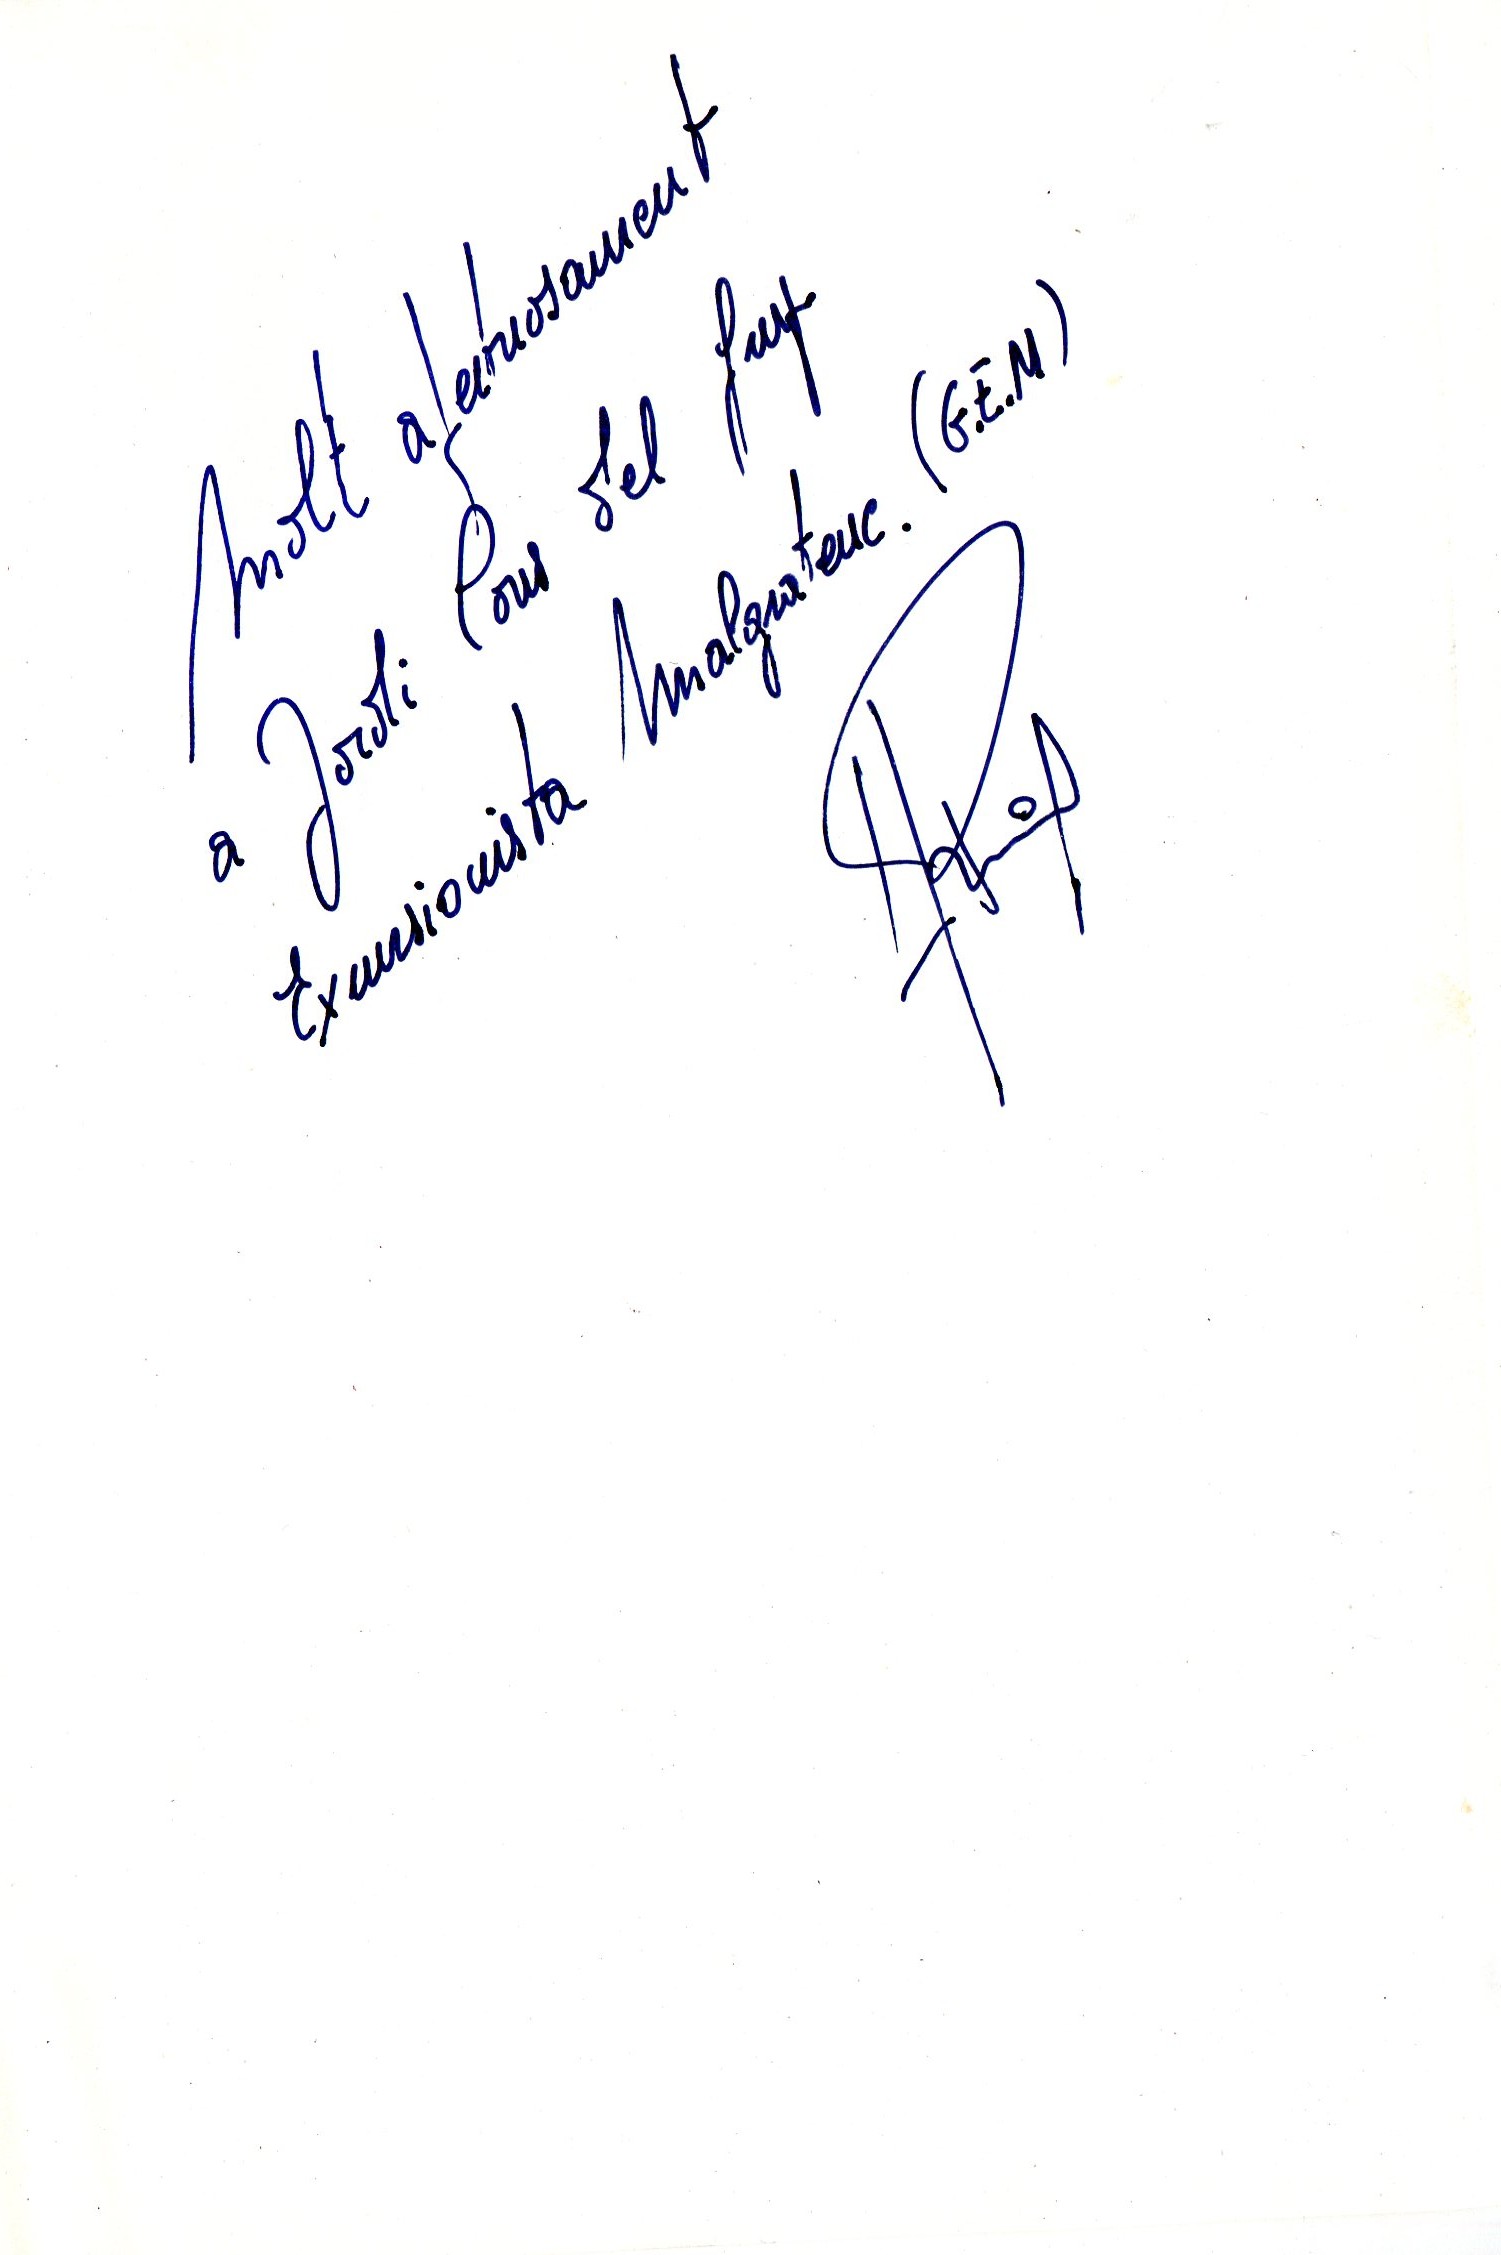 Molt afectuosament
a Jordi Pons del Grup
Excursionista Malgratenc. (G.E.M)